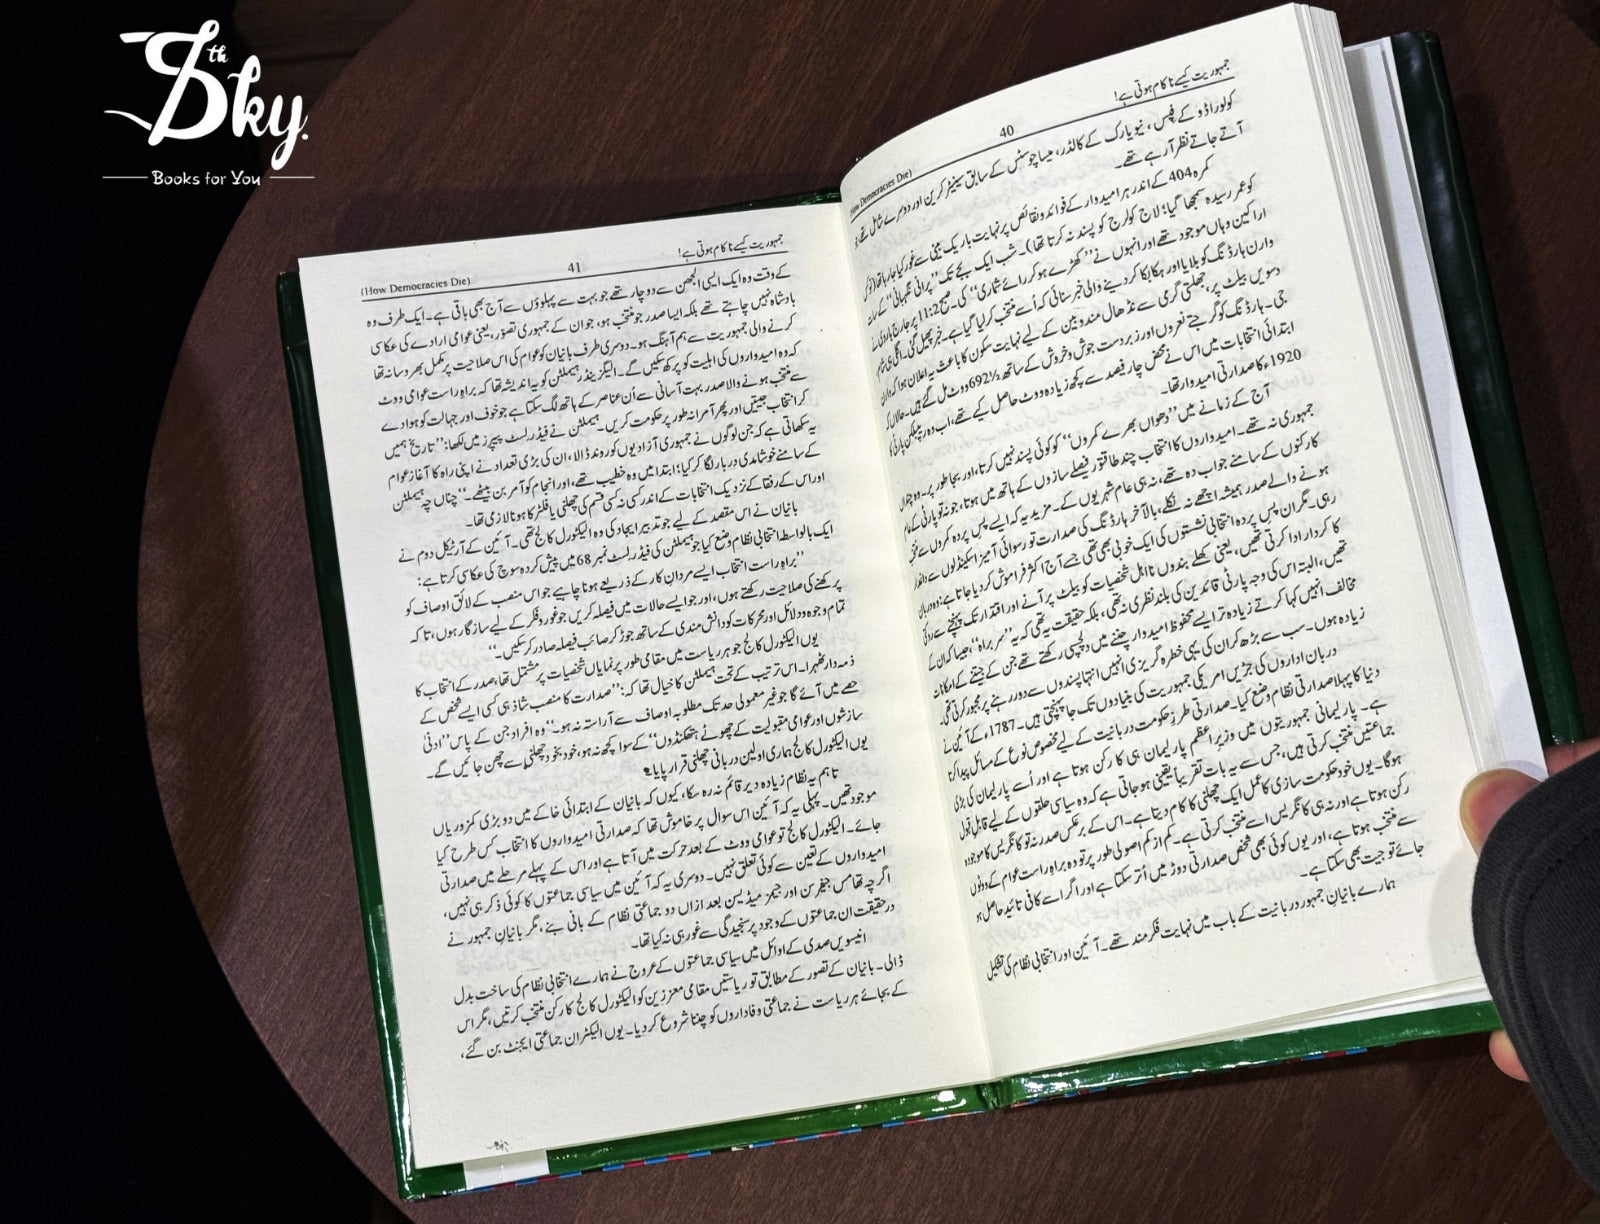 8th Sky.
Books for You
جمہوریت کیسے ناکام ہوتی ہے!
40
(How Democracies Die)
کولوراڈو کے فپس، نیویارک کے کالڈر، میساچوسٹس کے سابق سینیٹر کرین اور دوسرے شامل تھے،
آتے جاتے نظر آ رہے تھے۔
کمرہ 404 کے اندر ہر امیدوار کے فوائد و نقائص پر نہایت باریک بینی سے غور کیا جا رہا تھا
کو عمر رسیدہ سمجھا گیا؛ لاج کولرج کو پسند نہ کرتا تھا)۔ شب ایک بجے تک ”پرانی نگہبانی“ کے
اراکین وہاں موجود تھے اور انہوں نے ”کھڑے ہو کر رائے شماری“ کی۔ صبح 11:2 پر جارج ہاروی نے
وارن ہارڈنگ کو بلایا اور ہکا بکا کر دینے والی خبر سنائی کہ اُسے منتخب کر لیا گیا ہے۔ خبر پھیل گئی۔ اگلی شام
دسویں بیلٹ پر، جھلستی گرمی سے نڈھال مندوبین کے لیے نہایت سکون کا باعث یہ اعلان ہوا کہ وارن
جی۔ ہارڈنگ کو گرجتے نعروں اور زبردست جوش و خروش کے ساتھ 692½ ووٹ مل گئے ہیں۔ حالانکہ
ابتدائی انتخابات میں اس نے محض چار فیصد سے کچھ زیادہ ووٹ حاصل کیے تھے، اب وہ ریپبلکن پارٹی کا
1920ء کا صدارتی امیدوار تھا۔
آج کے زمانے میں ”دھواں بھرے کمروں“ کو کوئی پسند نہیں کرتا، اور بجا طور پر۔ وہ
جمہوری نہ تھے۔ امیدواروں کا انتخاب چند طاقتور فیصلے سازوں کے ہاتھ میں ہوتا، جو نہ تو پارٹی کے عام
کارکنوں کے سامنے جواب دہ تھے، نہ ہی عام شہریوں کے۔ مزید یہ کہ ایسے پس پردہ کمروں سے منتخب
ہونے والے صدر ہمیشہ اچھے نہ نکلے، بالآخر ہارڈنگ کی صدارت تو رسوائی آمیز اسکینڈلوں سے داغدار
رہی۔ مگر ان پس پردہ انتخابی نشستوں کی ایک خوبی بھی تھی جسے آج اکثر فراموش کر دیا جاتا ہے: وہ دربان
کا کردار ادا کرتی تھیں، یعنی کھلے بندوں نااہل شخصیات کو بیلٹ پر آنے اور اقتدار تک پہنچنے سے روکتی
تھیں، البتہ اس کی وجہ پارٹی قائدین کی بلند نظری نہ تھی، بلکہ حقیقت یہ تھی کہ یہ ”سربراہ“، جیسا کہ ان کے
مخالف انہیں کہا کرتے زیادہ تر ایسے محفوظ امیدوار چننے میں دلچسپی رکھتے تھے جن کے جیتنے کے امکانات
زیادہ ہوں۔ سب سے بڑھ کر ان کی یہی خطرہ گریزی انہیں انتہا پسندوں سے دور رہنے پر مجبور کرتی تھی۔
دربان اداروں کی جڑیں امریکی جمہوریت کی بنیادوں تک جا پہنچتی ہیں۔ 1787ء کے آئین نے
دنیا کا پہلا صدارتی نظام وضع کیا۔ صدارتی طرزِ حکومت دربانیت کے لیے مخصوص نوع کے مسائل پیدا کرتا
ہے۔ پارلیمانی جمہوریتوں میں وزیرِاعظم پارلیمان ہی کا رکن ہوتا ہے اور اُسے پارلیمان کی بڑی
جماعتیں منتخب کرتی ہیں، جس سے یہ بات تقریباً یقینی ہو جاتی ہے کہ وہ سیاسی حلقوں کے لیے قابلِ قبول
ہوگا۔ یوں خود حکومت سازی کا عمل ایک چھلنی کا کام دیتا ہے۔ اس کے برعکس صدر نہ تو کانگریس کا موجودہ
رکن ہوتا ہے اور نہ ہی کانگریس اسے منتخب کرتی ہے۔ کم از کم اصولی طور پر تو وہ براہِ راست عوام کے ووٹوں
سے منتخب ہوتا ہے، اور یوں کوئی بھی شخص صدارتی دوڑ میں اُتر سکتا ہے اور اگر اسے کافی تائید حاصل ہو
جائے تو جیت بھی سکتا ہے۔
ہمارے بانیانِ جمہور دربانیت کے باب میں نہایت فکرمند تھے۔ آئین اور انتخابی نظام کی تشکیل
جمہوریت کیسے ناکام ہوتی ہے!
41
(How Democracies Die)
کے وقت وہ ایک ایسی الجھن سے دوچار تھے جو بہت سے پہلوؤں سے آج بھی باقی ہے۔ ایک طرف وہ
بادشاہ نہیں چاہتے تھے بلکہ ایسا صدر جو منتخب ہو، جو ان کے جمہوری تصور، یعنی عوامی ارادے کی عکاسی
کرنے والی جمہوریت سے ہم آہنگ ہو۔ دوسری طرف بانیان کو عوام کی اس صلاحیت پر مکمل بھروسا نہ تھا
کہ وہ امیدواروں کی اہلیت کو پرکھ سکیں گے۔ الیگزینڈر ہیملٹن کو یہ اندیشہ تھا کہ براہِ راست عوامی ووٹ
سے منتخب ہونے والا صدر بہت آسانی سے اُن عناصر کے ہاتھ لگ سکتا ہے جو خوف اور جہالت کو ہوا دے
کر انتخاب جیتیں اور پھر آمرانہ طور پر حکومت کریں۔ ہیملٹن نے فیڈرلسٹ پیپرز میں لکھا: ”تاریخ ہمیں
یہ سکھاتی ہے کہ جن لوگوں نے جمہوری آزادیوں کو روند ڈالا، ان کی بڑی تعداد نے اپنی راہ کا آغاز عوام
کے سامنے خوشامدی دربار لگا کر کیا؛ ابتدا میں وہ خطیب تھے، اور انجام کو آمر بن بیٹھے۔“ چناں چہ ہیملٹن
اور اس کے رفقا کے نزدیک انتخابات کے اندر کسی نہ کسی قسم کی چھلنی یا فلٹر کا ہونا لازمی تھا۔
بانیان نے اس مقصد کے لیے جو تدبیر ایجاد کی وہ الیکٹورل کالج تھی۔ آئین کے آرٹیکل دوم نے
ایک بالواسطہ انتخابی نظام وضع کیا جو ہیملٹن کی فیڈرلسٹ نمبر 68 میں پیش کردہ سوچ کی عکاسی کرتا ہے:
”براہِ راست انتخاب ایسے مردانِ کار کے ذریعے ہونا چاہیے جو اس منصب کے لائق اوصاف کو
پرکھنے کی صلاحیت رکھتے ہوں، اور جو ایسے حالات میں فیصلہ کریں جو غور و فکر کے لیے سازگار ہوں، تاکہ
تمام وجوہ و دلائل اور محرکات کو دانش مندی کے ساتھ جوڑ کر صائب فیصلہ صادر کر سکیں۔“
یوں الیکٹورل کالج جو ہر ریاست میں مقامی طور پر نمایاں شخصیات پر مشتمل تھا، صدر کے انتخاب کا
ذمہ دار ٹھہرا۔ اس ترتیب کے تحت ہیملٹن کا خیال تھا کہ: ”صدارت کا منصب شاذ ہی کسی ایسے شخص کے
حصے میں آئے گا جو غیر معمولی حد تک مطلوبہ اوصاف سے آراستہ نہ ہو۔“ وہ افراد جن کے پاس ”ادنیٰ
سازشوں اور عوامی مقبولیت کے چھوٹے ہتھکنڈوں“ کے سوا کچھ نہ ہو، خود بخود چھلنی سے چھن جائیں گے۔
یوں الیکٹورل کالج ہماری اولین دربانی چھلنی قرار پایا۔
تاہم یہ نظام زیادہ دیر قائم نہ رہ سکا، کیوں کہ بانیان کے ابتدائی خاکے میں دو بڑی کمزوریاں
موجود تھیں۔ پہلی یہ کہ آئین اس سوال پر خاموش تھا کہ صدارتی امیدواروں کا انتخاب کس طرح کیا
جائے۔ الیکٹورل کالج تو عوامی ووٹ کے بعد حرکت میں آتا ہے اور اس کے پہلے مرحلے میں صدارتی
امیدواروں کے تعین سے کوئی تعلق نہیں۔ دوسری یہ کہ آئین میں سیاسی جماعتوں کا کوئی ذکر ہی نہیں،
اگرچہ تھامس جیفرسن اور جیمز میڈیسن بعد ازاں دو جماعتی نظام کے بانی بنے، مگر بانیانِ جمہور نے
درحقیقت ان جماعتوں کے وجود پر سنجیدگی سے غور ہی نہ کیا تھا۔
انیسویں صدی کے اوائل میں سیاسی جماعتوں کے عروج نے ہمارے انتخابی نظام کی ساخت بدل
ڈالی۔ بانیان کے تصور کے مطابق تو ریاستیں مقامی معززین کو الیکٹورل کالج کا رکن منتخب کرتیں، مگر اس
کے بجائے ہر ریاست نے جماعتی وفاداروں کو چننا شروع کر دیا۔ یوں الیکٹران جماعتی ایجنٹ بن گئے،